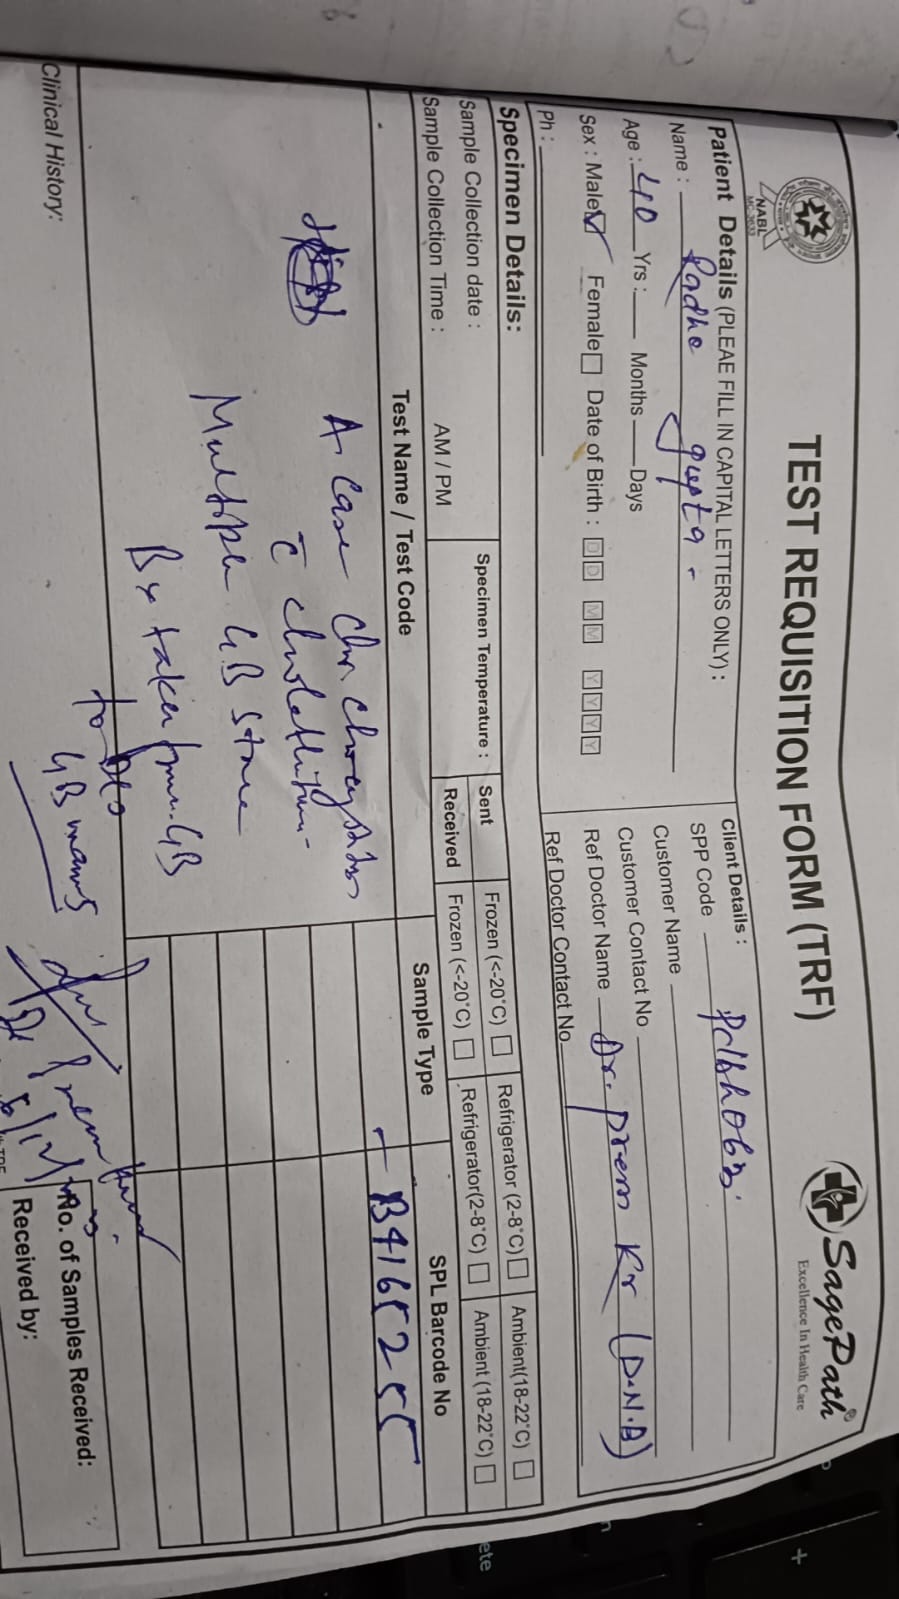 TEST REQUISITION FORM (TRF)
NABL
MC-3633
SagePath®
Excellence In Health Care
Patient Details (PLEAE FILL IN CAPITAL LETTERS ONLY) :
Name : Radhe gupta
Age : 40 Yrs : Months Days
Sex : Male Female Date of Birth : D D M M Y Y Y Y
Ph :
Client Details :
SPP Code
Customer Name
Customer Contact No
Ref Doctor Name Dr. Prem Kr (D.N.B)
Ref Doctor Contact No
Specimen Details:
Sample Collection date :
Sample Collection Time : AM / PM
Specimen Temperature :
Sent Frozen (<-20°C) Refrigerator (2-8°C) Ambient(18-22°C)
Received Frozen (<-20°C) Refrigerator(2-8°C) Ambient (18-22°C)
Test Name / Test Code Sample Type SPL Barcode No
A case
c̄
Multiple GB stone
Bx taken from GB
to
GB
Clinical History:
No. of Samples Received:
Received by: